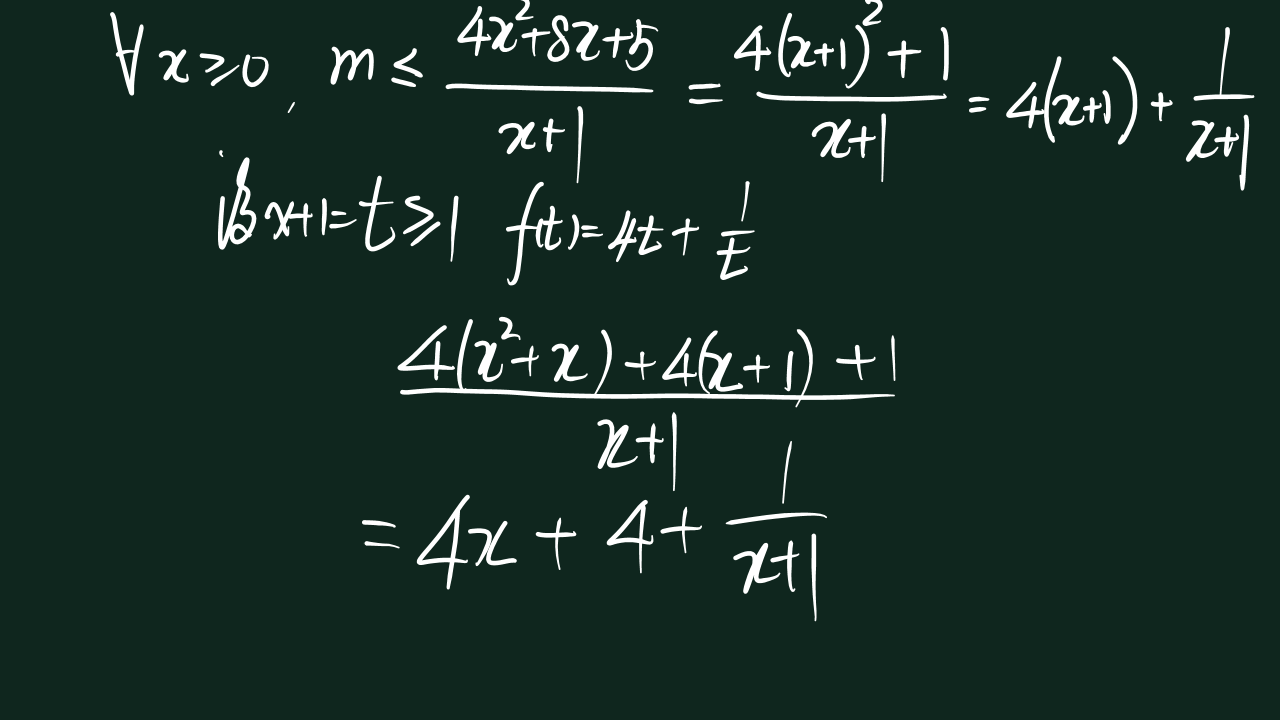 ∀ x ≥ 0, m ≤ (4x²+8x+5)/(x+1) = (4(x+1)²+1)/(x+1) = 4(x+1) + 1/(x+1)
设 x+1 = t ≥ 1 f(t) = 4t + 1/t
(4(x²+x)+4(x+1)+1)/(x+1)
= 4x + 4 + 1/(x+1)